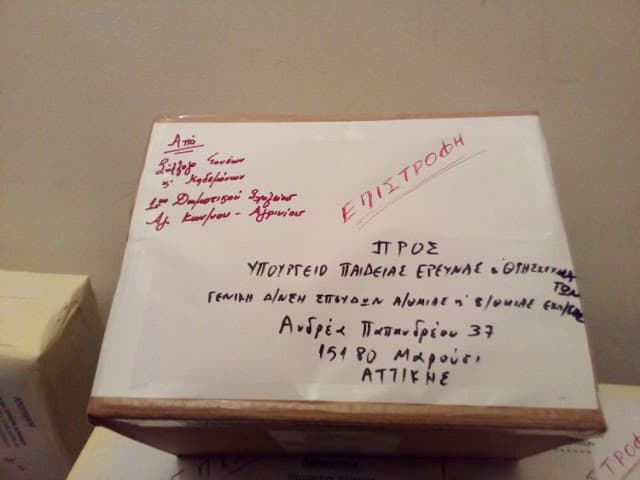 Από
Σύλλογο Γονέων
& Κηδεμόνων
1ου Δημοτικού Σχολείου
Αγ. Κων/νου - Αγρινίου
ΕΠΙΣΤΡΟΦΗ
ΠΡΟΣ
ΥΠΟΥΡΓΕΙΟ ΠΑΙΔΕΙΑΣ ΕΡΕΥΝΑΣ & ΘΡΗΣΚΕΥΜΑ
ΤΩΝ
ΓΕΝΙΚΗ Δ/ΝΣΗ ΣΠΟΥΔΩΝ Α/ΘΜΙΑΣ & Β/ΘΜΙΑΣ ΕΚΠ/ΣΗΣ
Ανδρέα Παπανδρέου 37
15180 Μαρούσι
ΑΤΤΙΚΗΣ